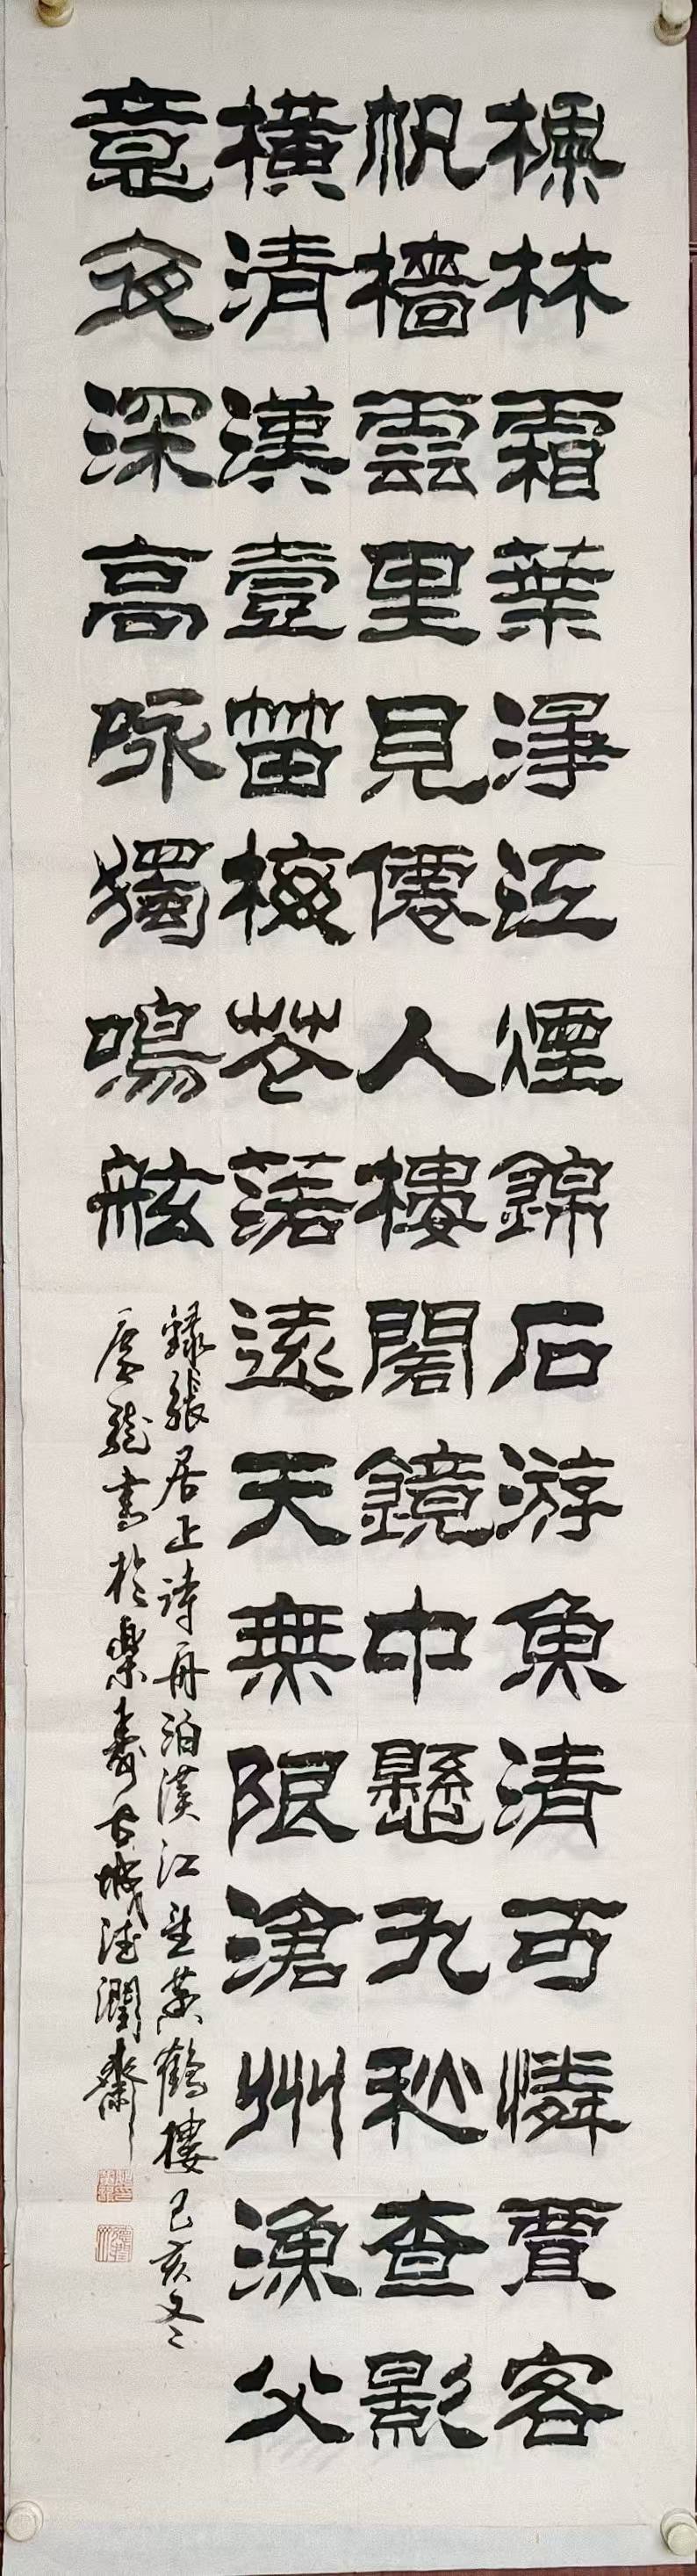 楓林霜葉淨江煙錦石游魚清可憐賈客
帆檣雲里見僊人樓閣鏡中懸九秋查影
橫清漢壹笛梅花落遠天無限滄州漁父
意夜深高咏獨鳴舷
錄張居正詩舟泊漢江望黃鶴樓己亥冬
龍書於樂壽古城德潤齋